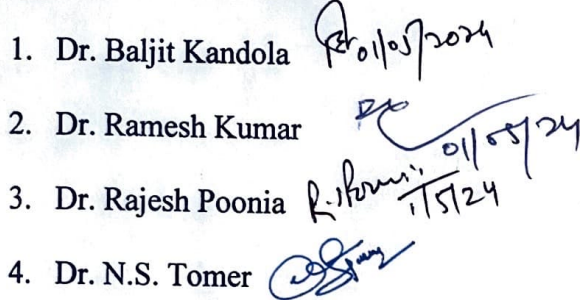 1. Dr. Baljit Kandola 01/05/2024
2. Dr. Ramesh Kumar 01/05/24
3. Dr. Rajesh Poonia 1/5/24
4. Dr. N.S. Tomer